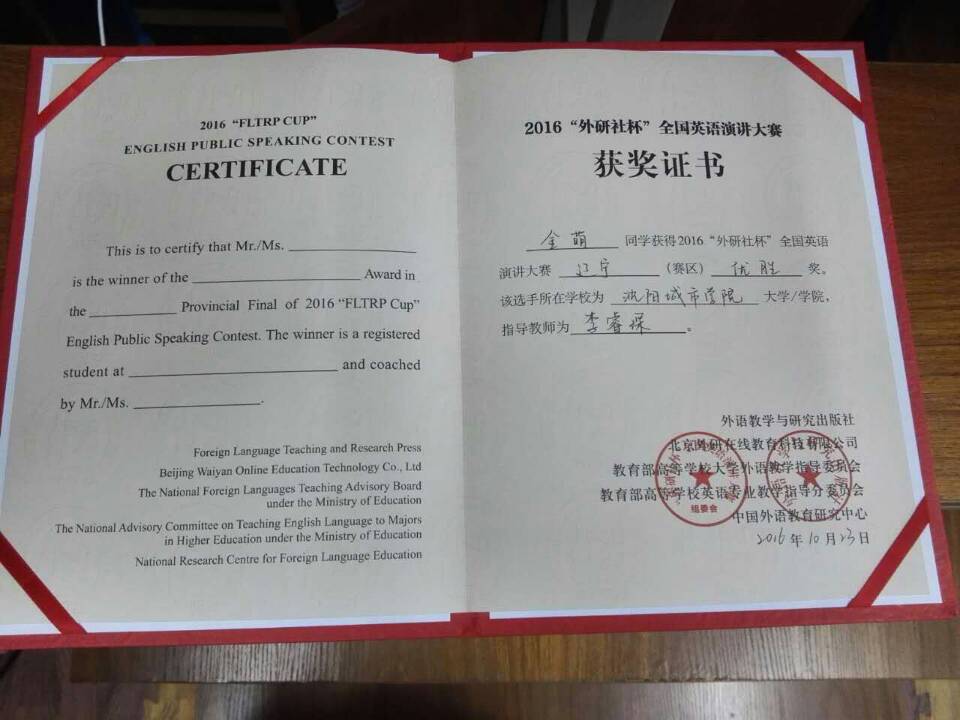 2016 “FLTRP CUP”
ENGLISH PUBLIC SPEAKING CONTEST
CERTIFICATE
This is to certify that Mr./Ms.
is the winner of the Award in
the Provincial Final of 2016 “FLTRP Cup”
English Public Speaking Contest. The winner is a registered
student at and coached
by Mr./Ms. .
Foreign Language Teaching and Research Press
Beijing Waiyan Online Education Technology Co., Ltd
The National Foreign Languages Teaching Advisory Board
under the Ministry of Education
The National Advisory Committee on Teaching English Language to Majors
in Higher Education under the Ministry of Education
National Research Centre for Foreign Language Education
2016 “外研社杯” 全国英语演讲大赛
获奖证书
金萌 同学获得2016 “外研社杯” 全国英语
演讲大赛 辽宁 （赛区） 优胜 奖。
该选手所在学校为 沈阳城市学院 大学/学院，
指导教师为 李睿 。
外语教学与研究出版社
北京外研在线教育科技有限公司
教育部高等学校大学外语教学指导委员会
教育部高等学校英语专业教学指导分委员会
中国外语教育研究中心
2016 年 10 月 23 日
组委会